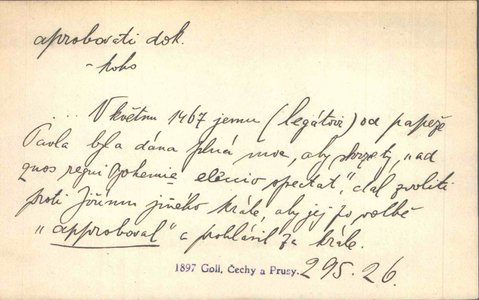 aprobovati dok.
- koho
... V květnu 1467 jemu (legátovi) od papeže
Pavla byla dána plná moc, aby "ad
quos regni Bohemie elécio spectat", dal zvoliti
proti Jiřímu jiného krále, aby jej po volbě
"approboval" a prohlásil za krále.
1897 Goll, Čechy a Prusy. 295.26.